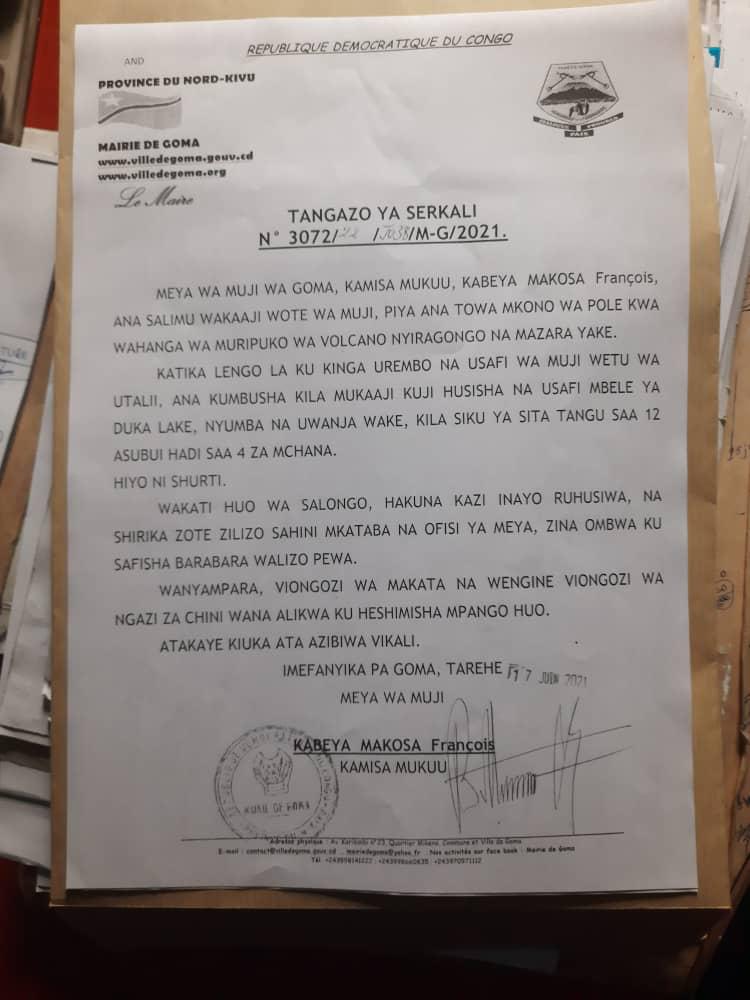 REPUBLIQUE DEMOCRATIQUE DU CONGO
AND
PROVINCE DU NORD-KIVU
MAIRIE DE GOMA
www.villedegoma.gouv.cd
www.villedegoma.org
Le Maire
TANGAZO YA SERKALI
N° 3072/22 / /M-G/2021.
MEYA WA MUJI WA GOMA, KAMISA MUKUU, KABEYA MAKOSA François,
ANA SALIMU WAKAAJI WOTE WA MUJI, PIYA ANA TOWA MKONO WA POLE KWA
WAHANGA WA MURIPUKO WA VOLCANO NYIRAGONGO NA MAZARA YAKE.
KATIKA LENGO LA KU KINGA UREMBO NA USAFI WA MUJI WETU WA
UTALII, ANA KUMBUSHA KILA MUKAAJI KUJI HUSISHA NA USAFI MBELE YA
DUKA LAKE, NYUMBA NA UWANJA WAKE, KILA SIKU YA SITA TANGU SAA 12
ASUBUI HADI SAA 4 ZA MCHANA.
HIYO NI SHURTI.
WAKATI HUO WA SALONGO, HAKUNA KAZI INAYO RUHUSIWA, NA
SHIRIKA ZOTE ZILIZO SAHINI MKATABA NA OFISI YA MEYA, ZINA OMBWA KU
SAFISHA BARABARA WALIZO PEWA.
WANYAMPARA, VIONGOZI WA MAKATA NA WENGINE VIONGOZI WA
NGAZI ZA CHINI WANA ALIKWA KU HESHIMISHA MPANGO HUO.
ATAKAYE KIUKA ATA AZIBIWA VIKALI.
IMEFANYIKA PA GOMA, TAREHE 17 JUIN 2021
MEYA WA MUJI
KABEYA MAKOSA François
KAMISA MUKUU
Adresse physique : Av. Karibalo n°23, Quartier Mikeno, Commune et Ville de Goma
E-mail : contact@villedegoma.gouv.cd . mairiedegoma@yahoo.fr . Nos activités sur face book : Mairie de Goma
Tél. +243998141222 ; +243998660635 ; +243970971112